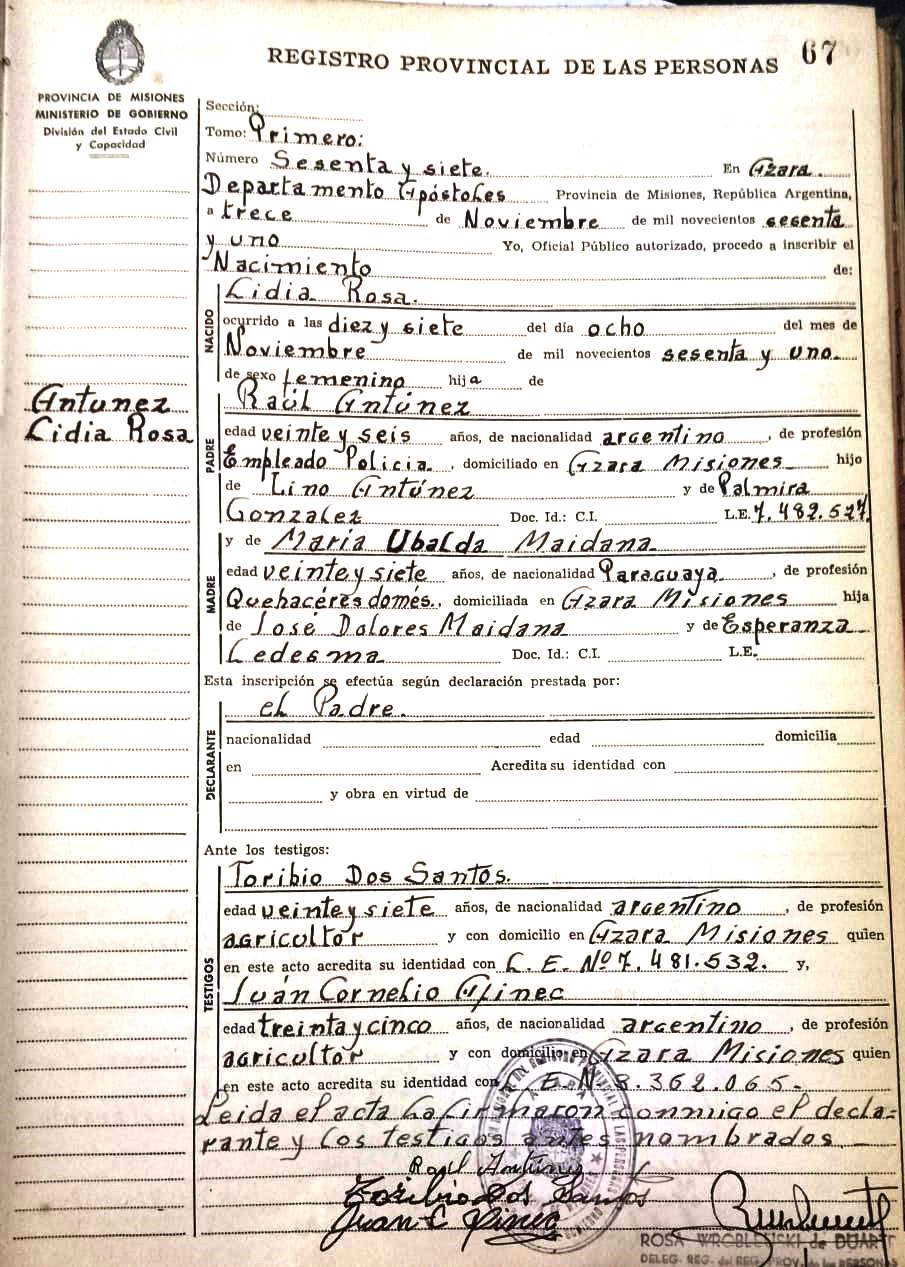 REGISTRO PROVINCIAL DE LAS PERSONAS 67
PROVINCIA DE MISIONES
MINISTERIO DE GOBIERNO
División del Estado Civil
y Capacidad
Sección:
Tomo: Primero:
Número Sesenta y siete. En Azara.
Departamento Apóstoles Provincia de Misiones, República Argentina,
a trece de Noviembre de mil novecientos sesenta
y uno Yo, Oficial Público autorizado, procedo a inscribir el
Nacimiento de:
NACIDO
Lidia Rosa.
ocurrido a las diez y siete del día ocho del mes de
Noviembre de mil novecientos sesenta y uno.
de sexo femenino hija de
Antunez
Lidia Rosa
PADRE
Raúl Antúnez
edad veinte y seis años, de nacionalidad argentino, de profesión
Empleado Policia., domiciliado en Azara Misiones hijo
de Lino Antúnez y de Palmira
Gonzalez Doc. Id.: C.I. L.E. 7.482.527
MADRE
y de Maria Ubalda Maidana
edad veinte y siete años, de nacionalidad Paraguaya, de profesión
Quehacéres domés., domiciliada en Azara Misiones hija
de José Dolores Maidana y de Esperanza
Ledesma Doc. Id.: C.I. L.E.
Esta inscripción se efectúa según declaración prestada por:
el Padre.
DECLARANTE
nacionalidad edad domicilia
en Acredita su identidad con
y obra en virtud de
Ante los testigos:
TESTIGOS
Toribio Dos Santos.
edad veinte y siete años, de nacionalidad argentino, de profesión
agricultor y con domicilio en Azara Misiones quien
en este acto acredita su identidad con L. E. Nº 7.481.532. y,
Juán Cornelio Apinec
edad treinta y cinco años, de nacionalidad argentino, de profesión
agricultor y con domicilio en Azara Misiones quien
en este acto acredita su identidad con L. E. Nº 3.362.065.-
Leida el acta la firmaron conmigo el decla-
rante y los testigos antes nombrados
Raúl Antúnez
Toribio Dos Santos
Juan C
ROSA WROBLEUSKI de DUARTE
DELEG. REG. del REG. PROV. de las PERSONAS